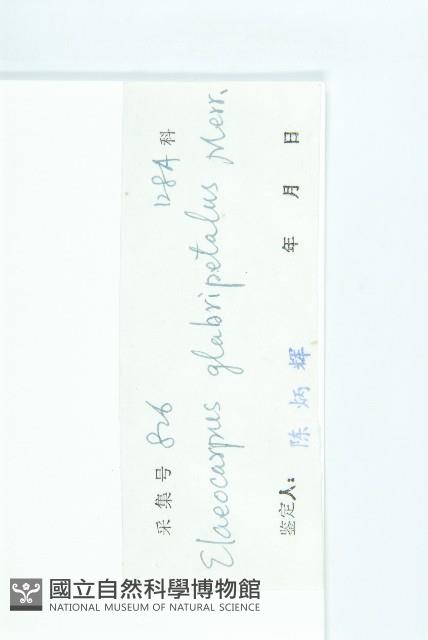 采集号 826 128A 科
Elaeocarpus glabripetalus Merr.
鉴定人: 陈炳辉 年 月 日
國立自然科學博物館
NATIONAL MUSEUM OF NATURAL SCIENCE